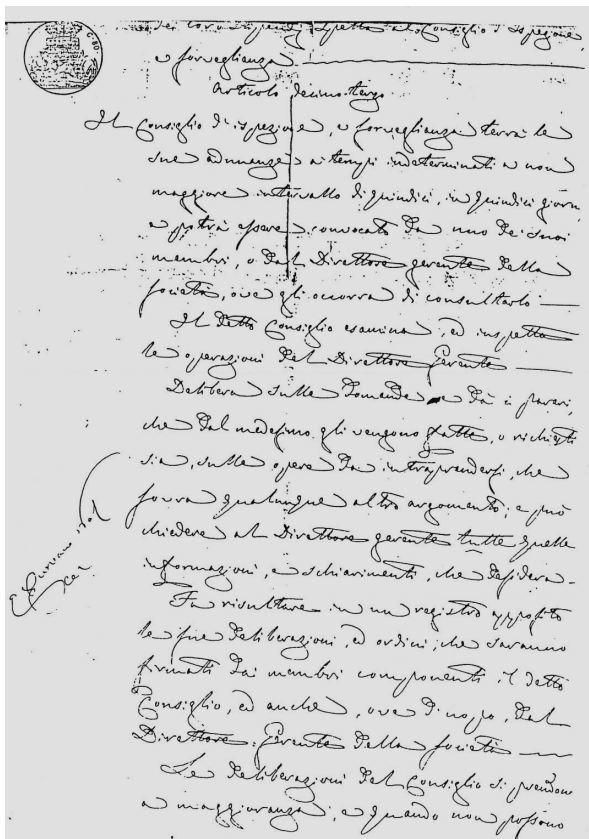 dei loro stipendj spetta al Consiglio d'Ispezione
e sorveglianza
Articolo decimo terzo
Il Consiglio di ispezione, e sorveglianza terrà le
sue adunanze a tempi indeterminati a non
maggiore intervallo di quindici, in quindici giorni
e potrà essere convocato da uno de' suoi
membri, o dal Direttore gerente della
società, ove gli occorra di consultarlo
Il detto Consiglio esamina, ed inspetta
le operazioni del Direttore Gerente
Delibera sulle domande e dà i pareri,
che dal medesimo gli vengono fatte, o richiesti
sia, sulle opere da intraprendersi, che
sovra qualunque altro argomento; e può
chiedere al Direttore gerente tutte quelle
informazioni, e schiarimenti, che desidera
Fa risultare in un registro apposito
le sue deliberazioni, ed ordini, che saranno
firmati dai membri componenti il detto
Consiglio, ed anche, ove d'uopo, dal
Direttore Gerente della società
Le deliberazioni del Consiglio si prendono
a maggioranza; e quando non possono